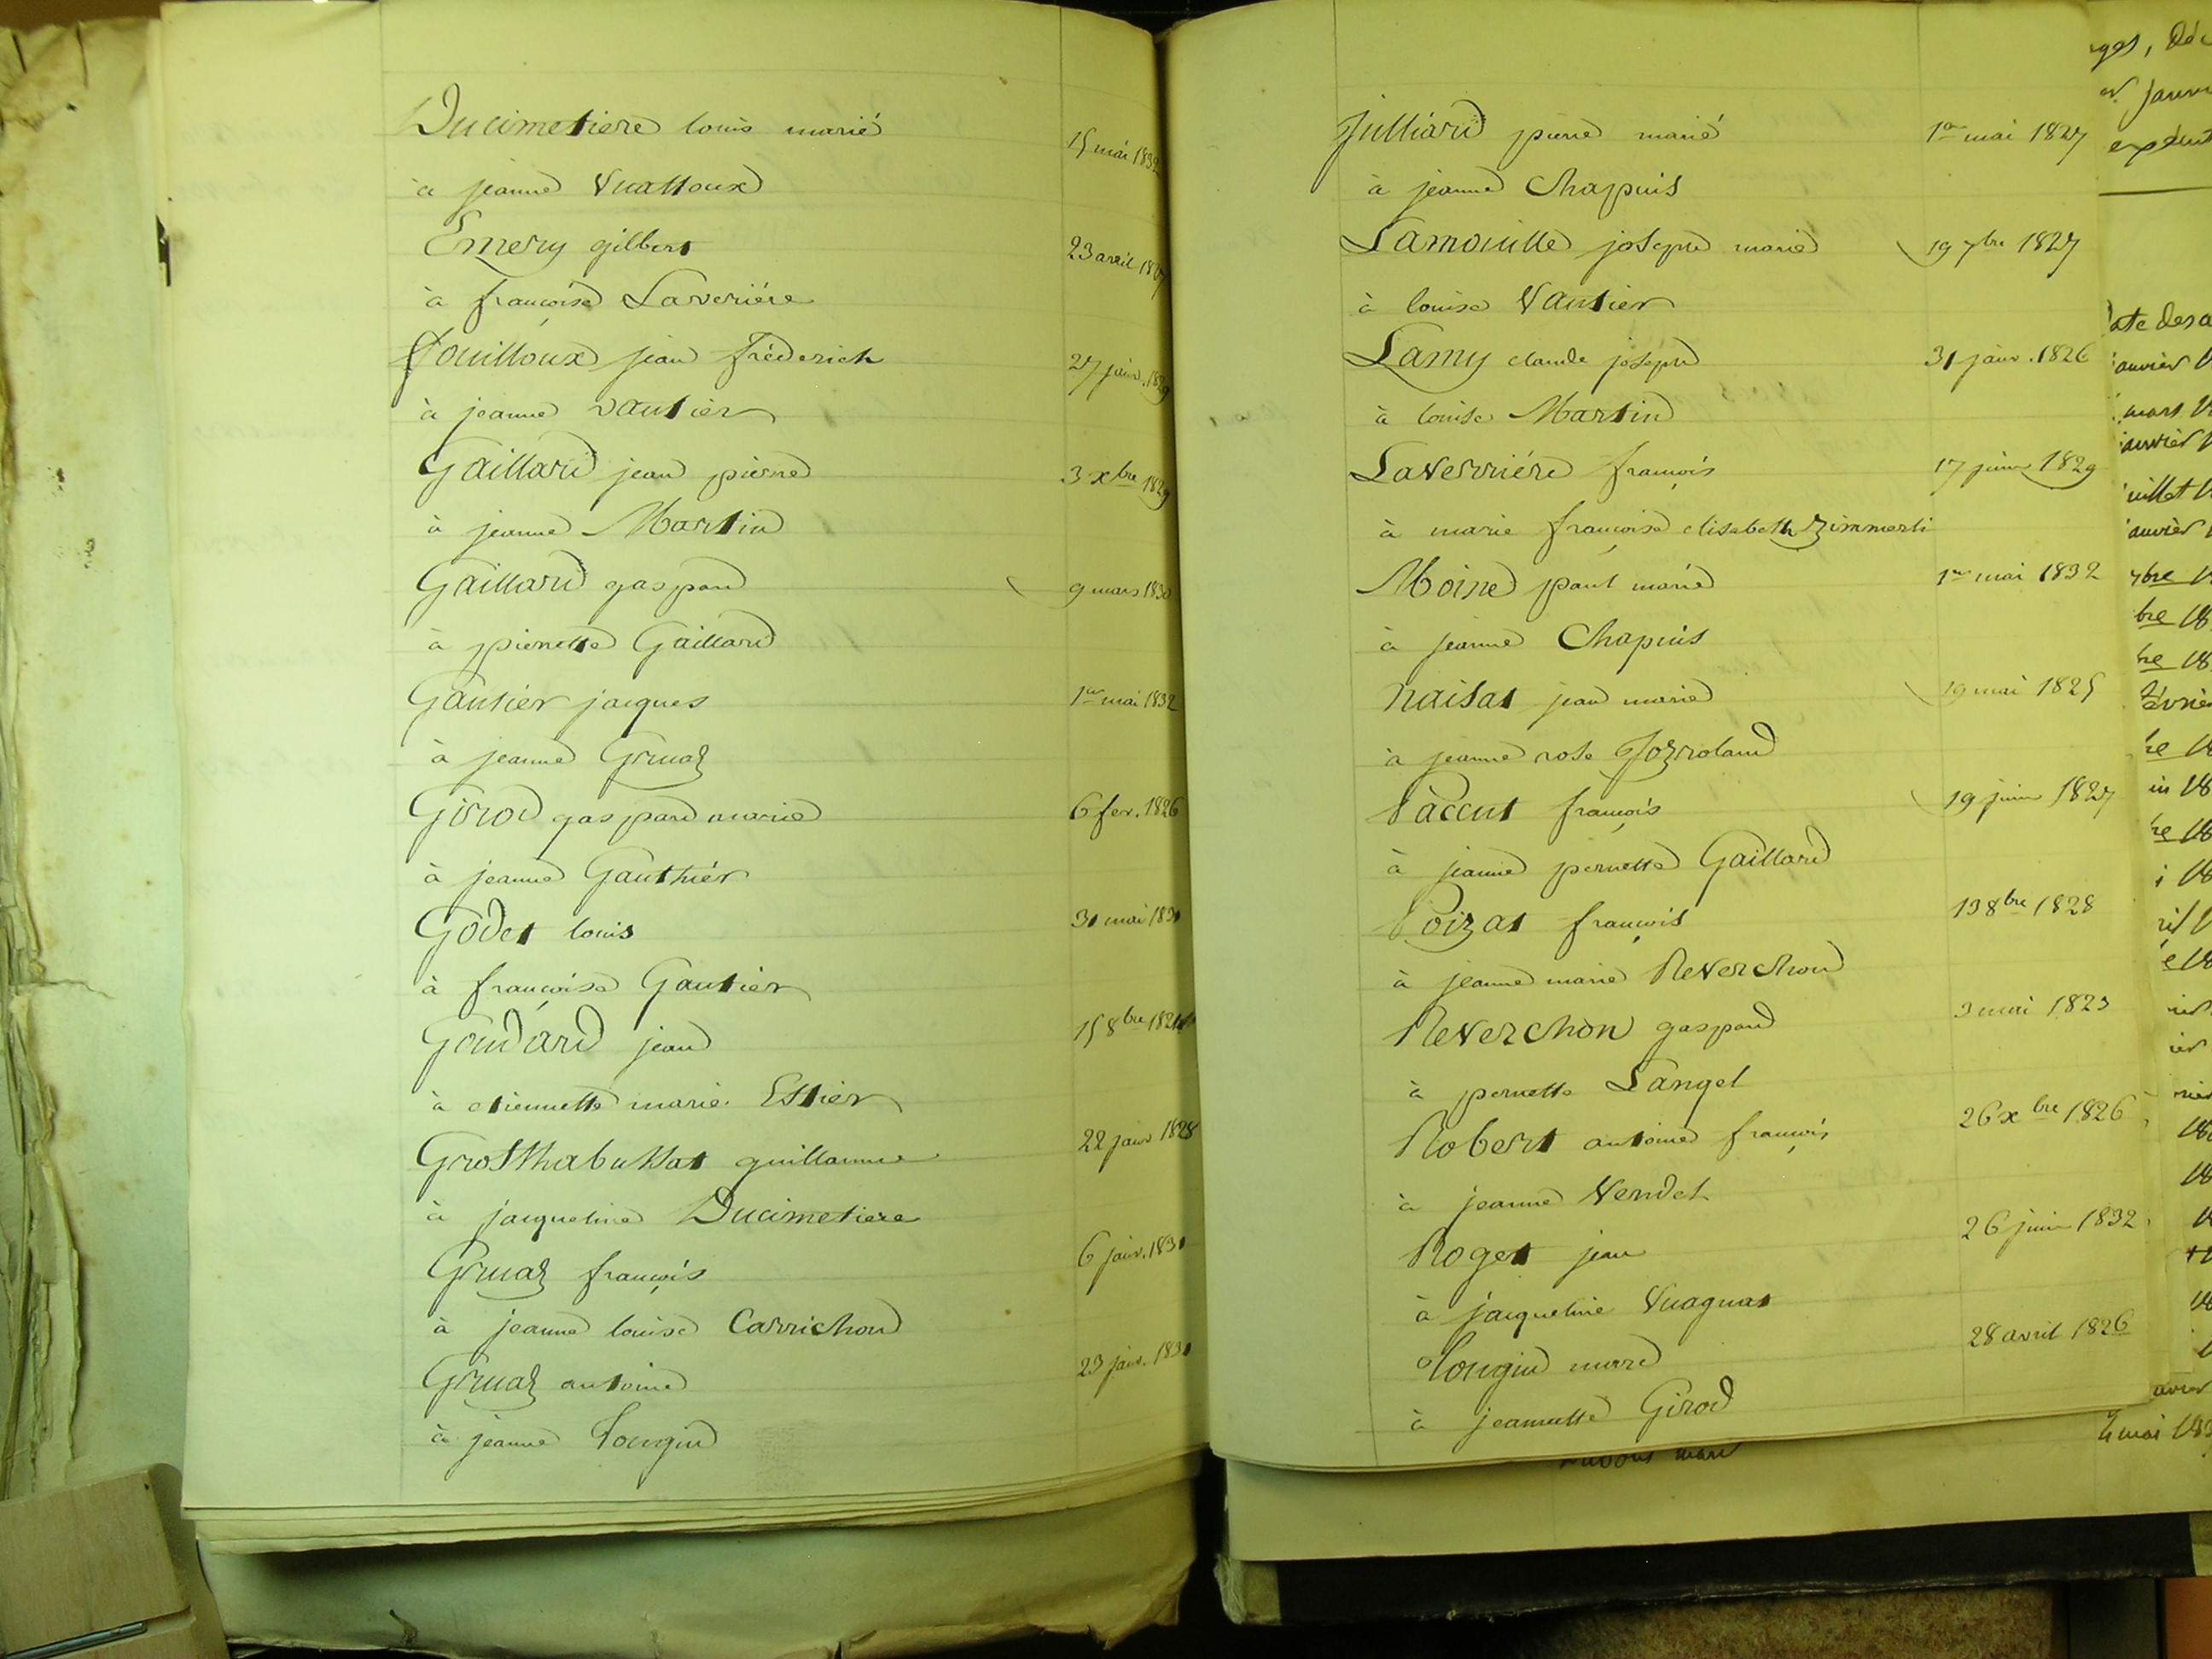 Ducimetiere louis marié 15 mai 1832
à jeanne Vuattoux
Emery gilbert 23 avril
à françoise Laveriére
Fouilloux jean fréderich 27 janv. 1829
à jeanne Vautier
Gaillard jean pierre 3 xbre 1829
à jeanne Martin
Gaillard gaspard 9 mars 1830
à pierrette Gaillard
Gautier jacques 1er mai 1832
à jeanne Gruaz
Girod gaspard marié 6 fev. 1826
à jeanne Gauthiér
Godet louis 31 mai 1831
à françoise Gautier
Goudard jean 15 8bre
à etiennette marie Estier
Grosthabussat guillaume 22 janv 1828
à jacqueline Ducimetiere
Gruaz françois 6 janv. 1831
à jeanne louise Carrichon
Gruaz antoine 23 janv. 1831
à jeanne Tongin
Julliard pierre marié 1er mai 1827
à jeanne Chapuis
Lamouille joseph marié 19 7bre 1827
à louise Vautier
Lamy claude joseph 31 janv. 1826
à louise Martin
Laverriére françois 17 juin 1829
à marie françoise elisabeth Zimmerli
Moine paul marié 1er mai 1832
à jeanne Chapuis
Naisat jean marié 19 mai 1825
à jeanne rose Jozroland
Paccut françois 19 juin 1827
à jeanne pernette Gaillard
Poizat françois 13 8bre 1828
à jeanne marie Reverchon
Reverchon gaspard 3 mai 1823
à pernette Langel
Robert antoine françois 26 xbre 1826
à jeanne Vendel
Roget jean 26 juin 1832
à jacqueline Vuagnat
Tongin marc 28 avril 1826
à jeannette Girod